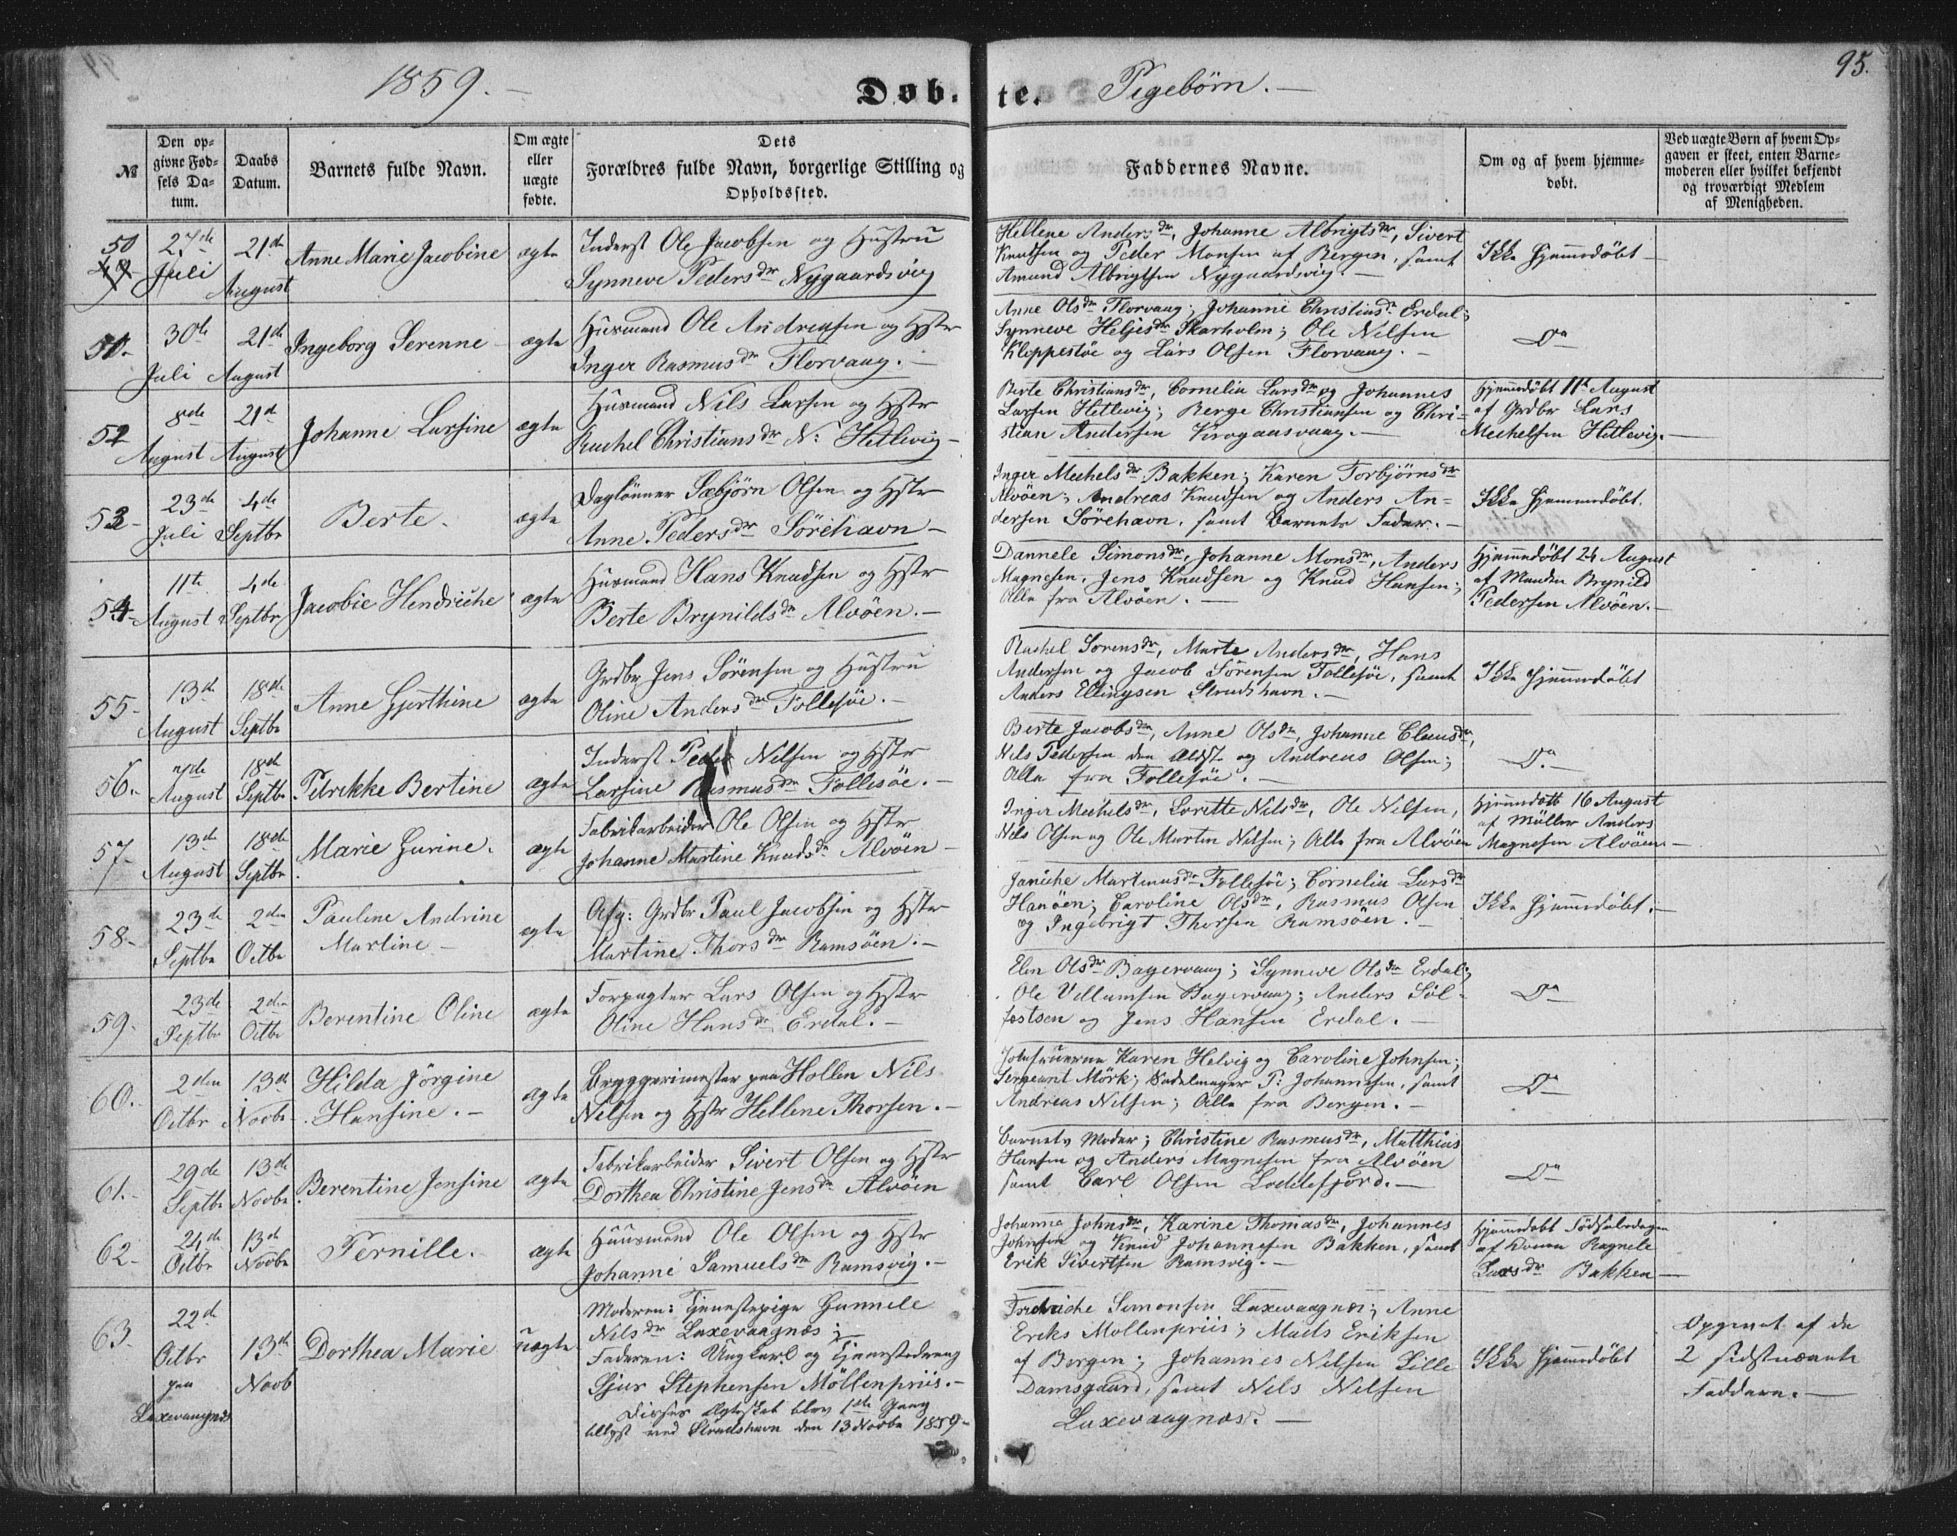 1859.
Døb.
te.
Pigebørn.
95.
№
Den op-
givne Fød-
sels Da-
tum.
Daabs
Datum.
Barnets fulde Navn.
Om ægte
eller
uægte
fødte.
Dets
Forældres fulde Navn, borgerlige Stilling og
Opholdssted.
Faddernes Navne.
Om og af hvem hjemme-
døbt.
Ved uægte Børn af hvem Op-
gaven er skeet, enten Barne-
moderen eller hvilket bekjendt
og troværdigt Medlem
af Menigheden.
50
27de Juli
21de August
Anne Marie Jacobine
ægte
Inderst Ole Jacobsen og Hustru
Synneve Pedersdr Nygaardsvig
Hellene Andersdr, Johanne Albrigtsdr, Sivert
Knudsen og Peder Monsen af Bergen, samt
Amund Albrigtsen Nygaardsvig.
Ikke hjemmedøbt
51.
30te Juli
21de August
Ingeborg Serenne
ægte
Huusmand Ole Andreassen og Hstr
Inger Rasmusdr Florvaag.
Anne Olsdr Florvaag; Johanne Christiansdr Erdal;
Synneve Heljesdr Skarholm; Ole Nilsen
Kleppestøe og Lars Olsen Florvaag.
Do
52
8de August
21de August
Johanne Larsine
ægte
Huusmand Nils Larsen og Hstr
Rachel Christiansdr N: Hetlevig
Berte Christiansdr, Cornelia Larsdr og Johannes
Larsen Hetlevig; Berge Christiansen og Chri-
stian Andersen Krogaasvaag.
Hjemmedøbt 11te August
af Grdbr Lars
Mechelsen Hetlevig.
53
23de Juli
4de Septbr
Berte.
ægte
Daglønner Sæbjørn Olsen og Hstr
Anne Pedersdr Sørehavn
Inger Mechelsdr Bakken; Karen Torbjørnsdr
Alvøen; Andreas Knudsen og Anders An-
dersen Sørehavn, samt Barnets Fader.
Ikke hjemmedøbt.
54
11te August
4de Septbr
Jacobie Hendriche
ægte
Huusmand Hans Knudsen og Hstr
Berte Brynildsdr Alvøen.
Dannele Simonsdr, Johanne Monsdr, Anders
Magnesen, Jens Knudsen og Knud Hansen;
Alle fra Alvøen.
Hjemmedøbt 24 August
af Manden Brynild
Pedersen Alvøen.
55
13de August
18de Septbr
Anne Gjerthine
ægte
Grdbr Jens Sørensen og Hustru
Oline Andersdr Follesøe.
Rachel Sørensdr, Marte Andersdr, Hans
Andersen og Jacob Sørensen Follesøe, samt
Anders Ellingsen Strudshavn.
Ikke hjemmedøbt
56.
7de August
18de Septbr
Petrikke Bertine
ægte
Inderst Peder Nilsen og Hstr
Larsine Rasmusdr Follesøe.
Berte Jacobsdr, Anne Olsdr, Johanne Clausdr,
Nils Pedersen den Ældste og Andreas Olsen;
Alle fra Follesøe.
Do.
57.
13de August
18de Septbr
Marie Gurine.
ægte
Fabrikarbeider Ole Olsen og Hstr
Johanne Martine Knudsdr Alvøen
Inger Mechelsdr, Lorette Nilsdr, Ole Nilsen,
Nils Olsen og Ole Martin Nilsen; Alle fra Alvøen
Hjemmedøbt 16 August
af Møller Anders
Magnesen Alvøen.
58.
23de Septbr
2den Octbr
Pauline Andrine
Martine
ægte
Afg: Grdbr Paul Jacobsen og Hstr
Martine Thorsdr Ramsøen.
Janiche Martinusdr Follesøe; Cornelia Larsdr
Hanøen; Caroline Olsdr, Rasmus Olsen
og Ingebrigt Thorsen Ramsøen.
Ikke hjemmedøbt.
59.
23de Septbr
2den Octbr
Berentine Oline
ægte
Forpagter Lars Olsen og Hstr
Oline Hansdr Erdal.
Elen Olsdr Bagervaag; Synneve Olsdr Erdal;
Ole Villumsen Bagervaag; Anders Søl-
festsen og Jens Hansen Erdal.
Do
60.
2den Octbr
13de Novbr
Hilda Jørgine
Hansine.
ægte
Bryggerimester paa Hollen Nils
Nilsen og Hstr Hellene Thorsen.
Jomfruerne Karen Helvig og Caroline Johnsen;
Sergeant Mörk; Sadelmager P: Johannesen, samt
Andreas Nilsen; Alle fra Bergen.
Do
61.
29de Septbr
13de Novbr
Berentine Jensine
ægte
Fabrikarbeider Sivert Olsen og Hstr
Dorthea Christine Jensdr Alvøen
Barnets Moder; Christine Rasmusdr, Matthias
Hansen og Anders Magnesen fra Alvøen
samt Carl Olsen Loddefjord.
Do
62.
24de Octbr
13de Novbr
Pernille.
ægte
Huusmand Ole Olsen og Hstr
Johanne Samuelsdr Ramsvig.
Johanna Johnsdr, Karine Thomasdr, Johannes
Johnsen og Knud Johannesen Bakken, samt
Erik Sivertsen Ramsvig.
Hjemmedøbt Fødselsdagen
af Konen Ragnele
Larsdr Bakken
63.
22de
Octbr
paa
Laxevaagnæs
13de
Novb
Dorthea Marie
uægte
Moderen: Tjenestepige Gunnele
Nilsdr Laxevaagnæs;
Faderen: Ungkarl og Tjenestedreng
Sjur Stephensen Möllenpriis.
Disses Ægteskab blev 1ste Gang
tillyst ved Strudshavn den 13 Novbr 1859.
Fredriche Simonsen Laxevaagnæs; Anne
Eriks Möllenpriis; Mads Eriksen
af Bergen; Johannes Nilsen Lille
Damsgaard, samt Nils Nilsen
Laxevaagnæs.
Ikke hjemmedøbt
Opgivet af de
2 sidstnævnte
Faddere.